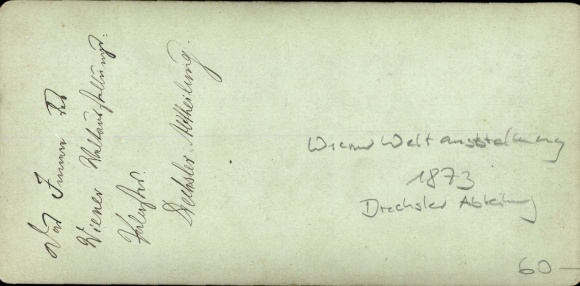 Das Innere des
Wiener Weltausstellungs-
Palastes.
Drechsler-Abtheilung.
Wiener Weltausstellung
1873
Drechsler Abteilung
60 —